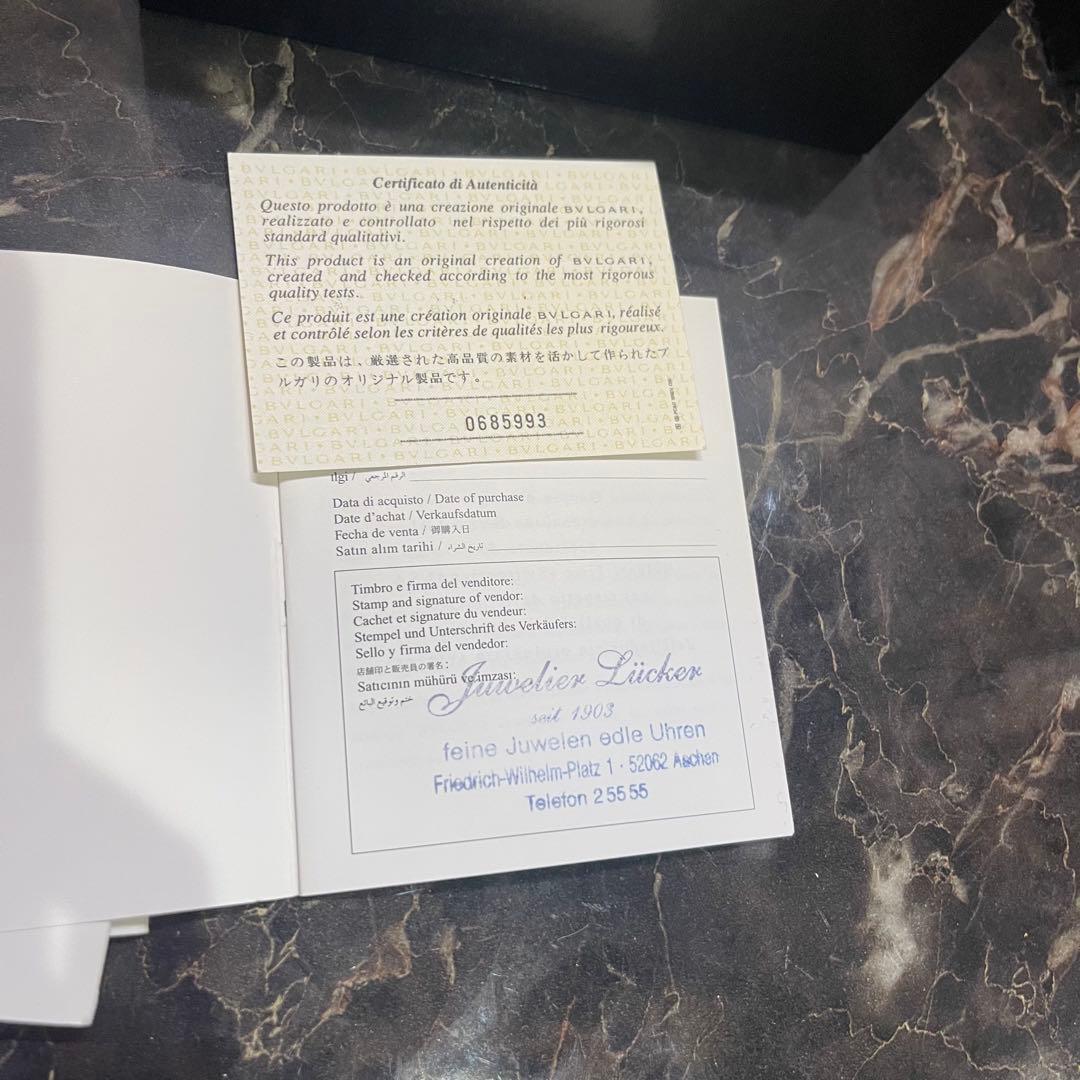 Certificato di Autenticità
Questo prodotto è una creazione originale BVLGARI,
realizzato e controllato nel rispetto dei più rigorosi
standard qualitativi.
This product is an original creation of BVLGARI,
created and checked according to the most rigorous
quality tests.
Ce produit est une création originale BVLGARI, réalisé
et contrôlé selon les critères de qualités les plus rigoureux.
この製品は、厳選された高品質の素材を活かして作られたブ
ルガリのオリジナル製品です。
0685993
ilgi / الرقم المرجعي
Data di acquisto / Date of purchase
Date d'achat / Verkaufsdatum
Fecha de venta / 御購入日
Satın alım tarihi / تاريخ الشراء
Timbro e firma del venditore:
Stamp and signature of vendor:
Cachet et signature du vendeur:
Stempel und Unterschrift des Verkäufers:
Sello y firma del vendedor:
店舗印と販売員の署名:
Satıcının mühürü ve imzası:
ختم وتوقيع البائع
Juwelier Lücker
seit 1903
feine Juwelen edle Uhren
Friedrich-Wilhelm-Platz 1 · 52062 Aachen
Telefon 2 55 55